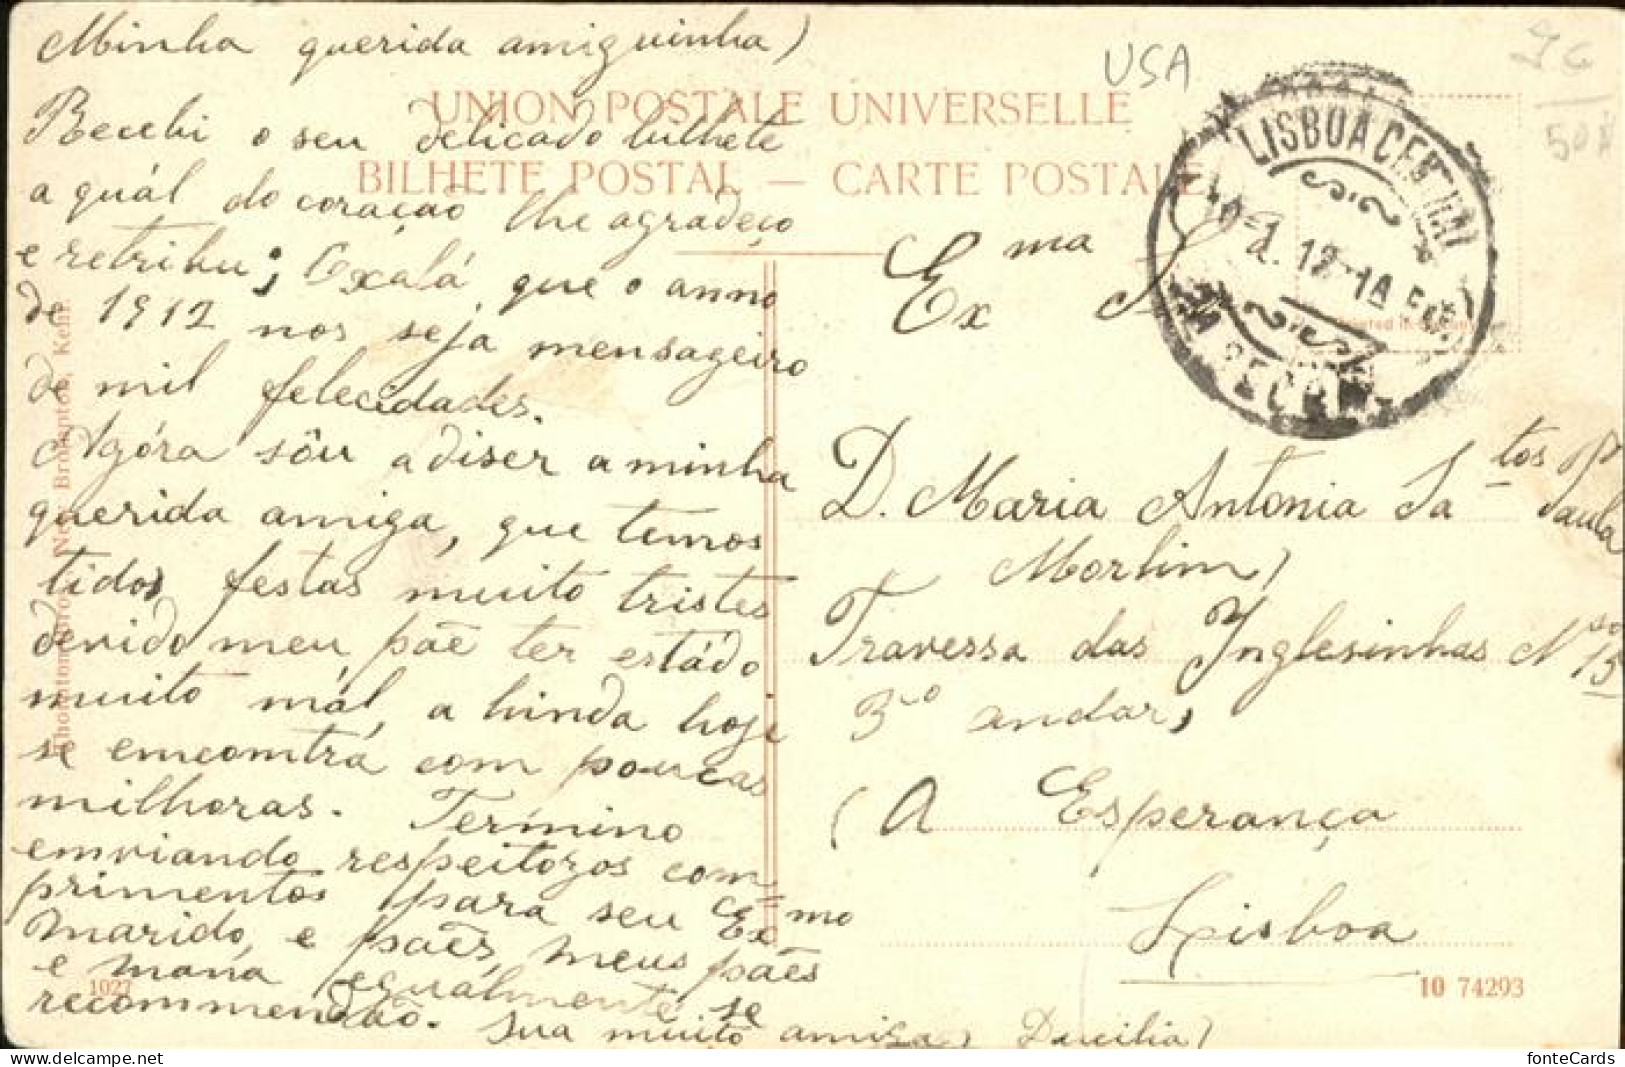 Minha querida amiguinha)
Recebi o seu delicado bilhete
a quál do coração lhe agradeço
e retribu; Oxalá, que o anno
de 1912 nos seja mensageiro
de mil felecidades.
Agóra sôu a diser a minha
querida amiga, que temos
tidos festas muito tristes
devido meu pãe ter estádo
muito mál, a hinda hoje
se emcomtrá com poucas
milhoras. Termino
emviando respeitozos com=
primentos para seu Exmo
Marido, e pães, meus pães
e maná egualmente se
recommendão. Sua muito amiga, Ducilia)
UNION POSTALE UNIVERSELLE
BILHETE POSTAL — CARTE POSTALE
USA
50
LISBOA CENTRAL
1.12-10
Exma S
D. Maria Antonia Satos Paula
Morlim)
Travessa das Inglesinhas No 15
3º andar,
(A Esperança
Lisboa
Kehl
1027
10 74293
fonteCards